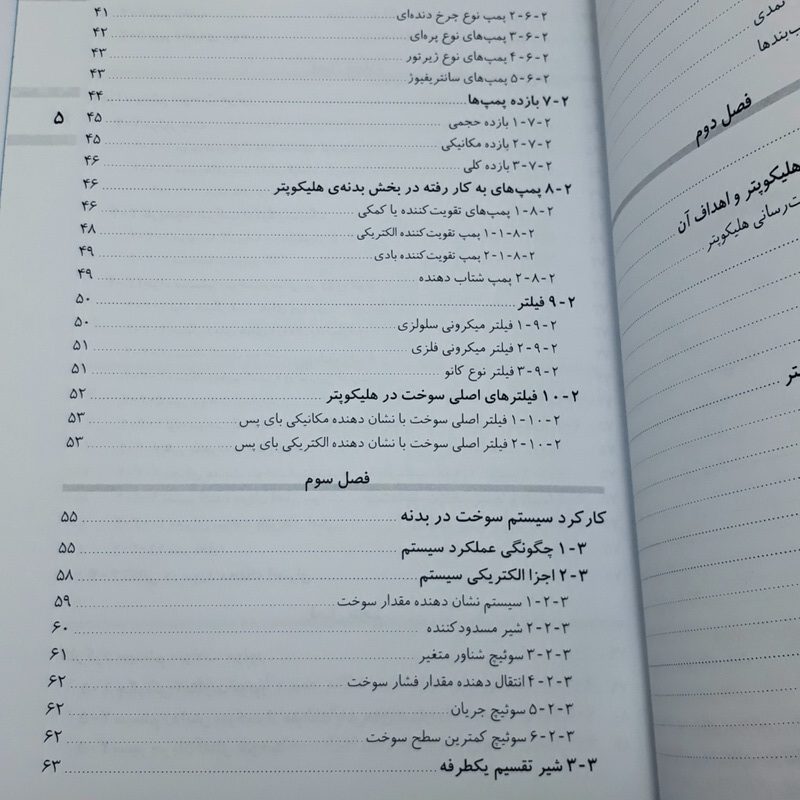 نمدی
فصل دوم
هلیکوپتر و اهداف آن
ت‌رسانی هلیکوپتر
۲-۶-۲ پمپ نوع چرخ دنده‌ای ۴۱
۳-۶-۲ پمپ‌های نوع پره‌ای ۴۲
۴-۶-۲ پمپ‌های نوع ژیرتور ۴۳
۵-۶-۲ پمپ‌های سانتریفیوژ ۴۳
۷-۲ بازده پمپ‌ها ۴۴
۵
۱-۷-۲ بازده حجمی ۴۵
۲-۷-۲ بازده مکانیکی ۴۵
۳-۷-۲ بازده کلی ۴۶
۸-۲ پمپ‌های به کار رفته در بخش بدنه‌ی هلیکوپتر ۴۶
۱-۸-۲ پمپ‌های تقویت‌کننده یا کمکی ۴۶
۱-۱-۸-۲ پمپ تقویت‌کننده الکتریکی ۴۸
۲-۱-۸-۲ پمپ تقویت‌کننده بادی ۴۹
۲-۸-۲ پمپ شتاب دهنده ۴۹
۹-۲ فیلتر ۵۰
۱-۹-۲ فیلتر میکرونی سلولزی ۵۰
۲-۹-۲ فیلتر میکرونی فلزی ۵۱
۳-۹-۲ فیلتر نوع کانو ۵۱
۱۰-۲ فیلترهای اصلی سوخت در هلیکوپتر ۵۲
۱-۱۰-۲ فیلتر اصلی سوخت با نشان دهنده مکانیکی بای پس ۵۳
۲-۱۰-۲ فیلتر اصلی سوخت با نشان دهنده الکتریکی بای پس ۵۳
فصل سوم
کارکرد سیستم سوخت در بدنه ۵۵
۱-۳ چگونگی عملکرد سیستم ۵۵
۲-۳ اجزا الکتریکی سیستم ۵۸
۱-۲-۳ سیستم نشان دهنده مقدار سوخت ۵۹
۲-۲-۳ شیر مسدودکننده ۶۰
۳-۲-۳ سوئیچ شناور متغیر ۶۱
۴-۲-۳ انتقال دهنده مقدار فشار سوخت ۶۲
۵-۲-۳ سوئیچ جریان ۶۲
۶-۲-۳ سوئیچ کمترین سطح سوخت ۶۲
۳-۳ شیر تقسیم یکطرفه ۶۳